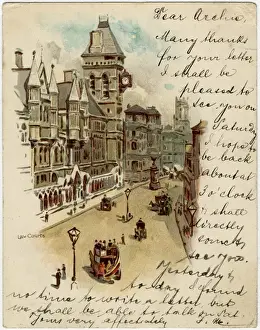 Dear Archie
Many thanks
for your letter
I shall be
pleased to
see you on
Saturday
I hope to
be back
about at
3 o'clock
& shall
directly
come &
see you.
Yesterday &
to day I found
no time to write a letter, but
we shall be able to talk on Sat.
Yours very affectately
LAW COURTS